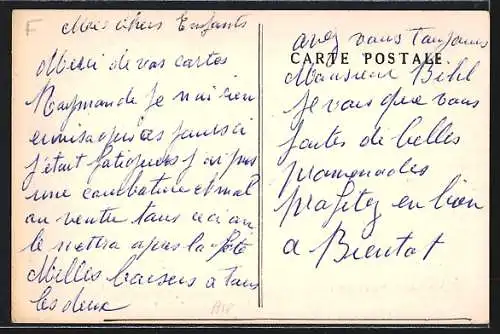 F
Mes chers Enfants
Merci de vos cartes
Raymonde je n'ai rien
envisagé ces jours ci
j'étais fatiguée j'ai pris
une courbature et mal
au ventre tous ceci on
le mettra apres la fete
Milles baisers a tous
les deux
A18
avez vous toujours
CARTE POSTALE
Monsieur Bihl
je vois que vous
faites de belles
promenades
profitez en bien
a Bientot